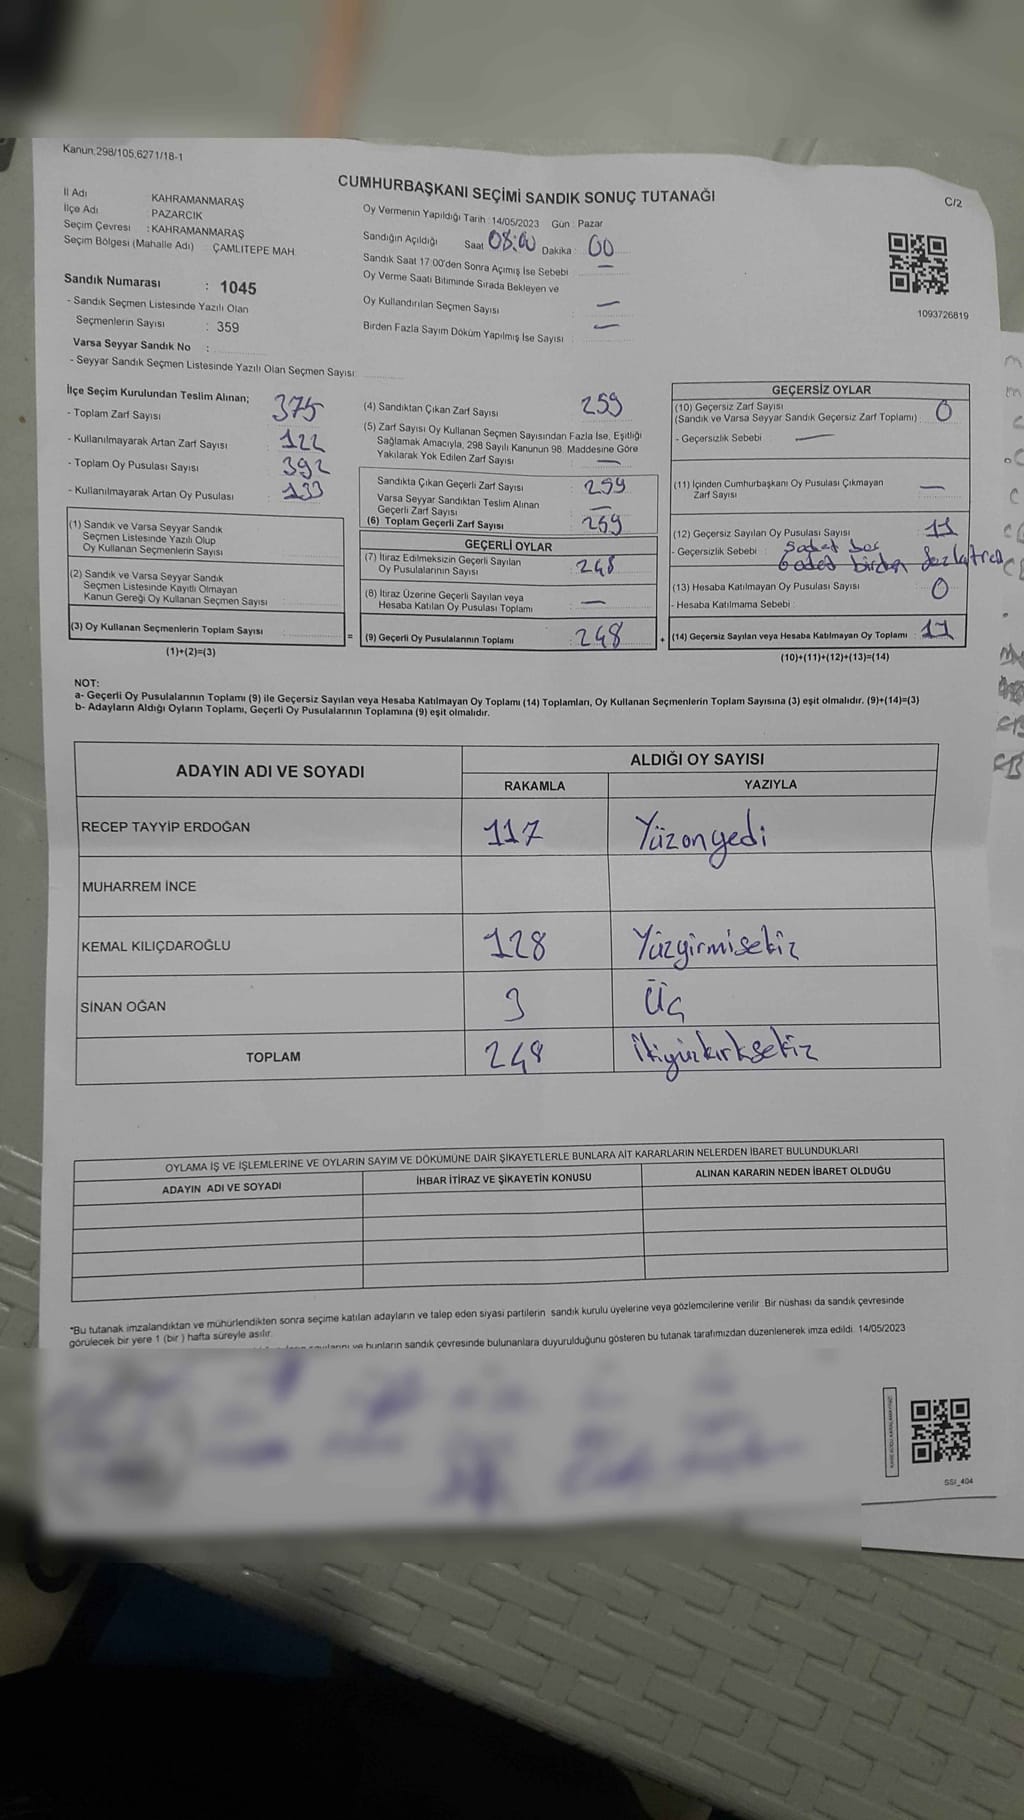 Kanun;298/105,6271/18-1
CUMHURBAŞKANI SEÇİMİ SANDIK SONUÇ TUTANAĞI
C/2
İl Adı KAHRAMANMARAŞ
İlçe Adı PAZARCIK
Seçim Çevresi : KAHRAMANMARAŞ
Seçim Bölgesi (Mahalle Adı) : ÇAMLITEPE MAH.
Oy Vermenin Yapıldığı Tarih : 14/05/2023 Gün : Pazar
Sandığın Açıldığı Saat 08:00 Dakika : 00
Sandık Saat 17:00'den Sonra Açımış İse Sebebi : —
Oy Verme Saati Bitiminde Sırada Bekleyen ve
Oy Kullandırılan Seçmen Sayısı : —
Birden Fazla Sayım Döküm Yapılmış İse Sayısı : —
1093726819
Sandık Numarası : 1045
- Sandık Seçmen Listesinde Yazılı Olan
Seçmenlerin Sayısı : 359
Varsa Seyyar Sandık No :
- Seyyar Sandık Seçmen Listesinde Yazılı Olan Seçmen Sayısı:
İlçe Seçim Kurulundan Teslim Alınan;
- Toplam Zarf Sayısı : 375
- Kullanılmayarak Artan Zarf Sayısı : 122
- Toplam Oy Pusulası Sayısı : 392
- Kullanılmayarak Artan Oy Pusulası : 133
(1) Sandık ve Varsa Seyyar Sandık
Seçmen Listesinde Yazılı Olup
Oy Kullanan Seçmenlerin Sayısı :
(2) Sandık ve Varsa Seyyar Sandık
Seçmen Listesinde Kayıtlı Olmayan
Kanun Gereği Oy Kullanan Seçmen Sayısı :
(3) Oy Kullanan Seçmenlerin Toplam Sayısı :
(1)+(2)=(3)
(4) Sandıktan Çıkan Zarf Sayısı : 259
(5) Zarf Sayısı Oy Kullanan Seçmen Sayısından Fazla İse, Eşitliği
Sağlamak Amacıyla, 298 Sayılı Kanunun 98. Maddesine Göre
Yakılarak Yok Edilen Zarf Sayısı : —
Sandıkta Çıkan Geçerli Zarf Sayısı : 259
Varsa Seyyar Sandıktan Teslim Alınan
Geçerli Zarf Sayısı :
(6) Toplam Geçerli Zarf Sayısı : 259
GEÇERLİ OYLAR
(7) İtiraz Edilmeksizin Geçerli Sayılan
Oy Pusulalarının Sayısı : 248
(8) İtiraz Üzerine Geçerli Sayılan veya
Hesaba Katılan Oy Pusulası Toplamı : —
= (9) Geçerli Oy Pusulalarının Toplamı : 248
GEÇERSİZ OYLAR
(10) Geçersiz Zarf Sayısı
(Sandık ve Varsa Seyyar Sandık Geçersiz Zarf Toplamı) : 0
- Geçersizlik Sebebi : —
(11) İçinden Cumhurbaşkanı Oy Pusulası Çıkmayan
Zarf Sayısı : —
(12) Geçersiz Sayılan Oy Pusulası Sayısı : 11
- Geçersizlik Sebebi : 5 adet boş
6 adet birden fazla
(13) Hesaba Katılmayan Oy Pusulası Sayısı : 0
- Hesaba Katılmama Sebebi :
+ (14) Geçersiz Sayılan veya Hesaba Katılmayan Oy Toplamı : 11
(10)+(11)+(12)+(13)=(14)
NOT:
a- Geçerli Oy Pusulalarının Toplamı (9) ile Geçersiz Sayılan veya Hesaba Katılmayan Oy Toplamı (14) Toplamları, Oy Kullanan Seçmenlerin Toplam Sayısına (3) eşit olmalıdır. (9)+(14)=(3)
b- Adayların Aldığı Oyların Toplamı, Geçerli Oy Pusulalarının Toplamına (9) eşit olmalıdır.
ADAYIN ADI VE SOYADI ALDIĞI OY SAYISI
RAKAMLA YAZIYLA
RECEP TAYYİP ERDOĞAN 117 Yüzonyedi
MUHARREM İNCE
KEMAL KILIÇDAROĞLU 128 Yüzyirmisekiz
SİNAN OĞAN 3 Üç
TOPLAM 248 İkiyüzkırksekiz
OYLAMA İŞ VE İŞLEMLERİNE VE OYLARIN SAYIM VE DÖKÜMÜNE DAİR ŞİKAYETLERLE BUNLARA AİT KARARLARIN NELERDEN İBARET BULUNDUKLARI
ADAYIN ADI VE SOYADI İHBAR İTİRAZ VE ŞİKAYETİN KONUSU ALINAN KARARIN NEDEN İBARET OLDUĞU
*Bu tutanak imzalandıktan ve mühürlendikten sonra seçime katılan adayların ve talep eden siyasi partilerin sandık kurulu üyelerine veya gözlemcilerine verilir. Bir nüshası da sandık çevresinde
görülecek bir yere 1 (bir ) hafta süreyle asılır.
ve bunların sandık çevresinde bulunanlara duyurulduğunu gösteren bu tutanak tarafımızdan düzenlenerek imza edildi. 14/05/2023
SSI_404